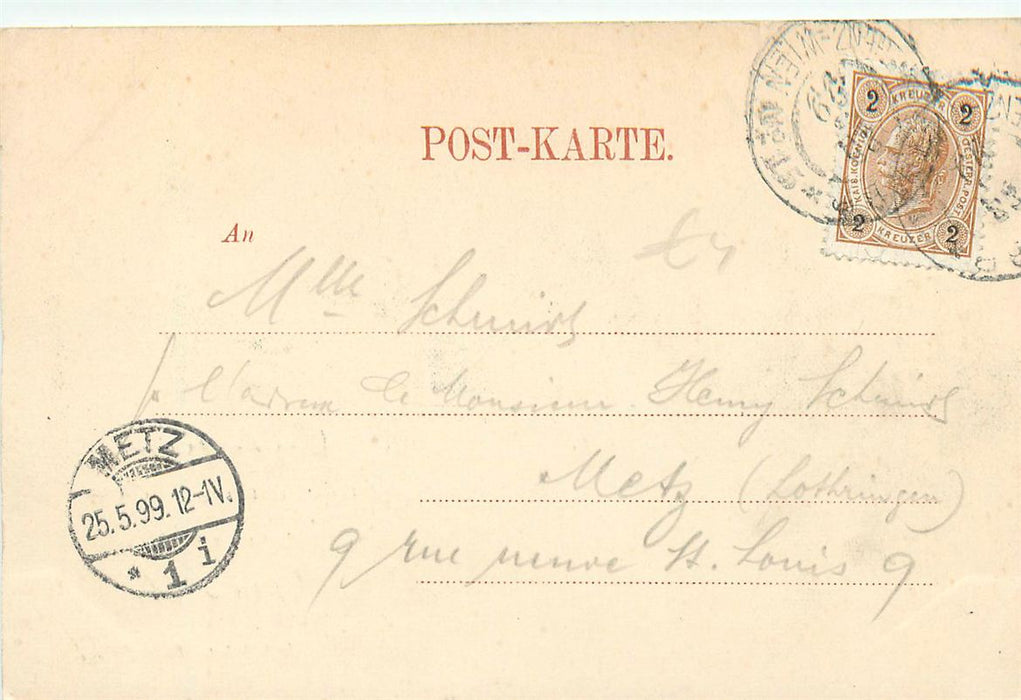 POST-KARTE.
2 KREUZER 2
KAIS. KOENIGL. OESTERR. POST
2 KREUZER 2
WIEN
99
An
Mlle Schmidt
l'adresse de Monsieur Henry Schmidt
Metz (Lothringen)
9 rue neuve St. Louis 9
METZ
25.5.99. 12-1V.
* 1 i